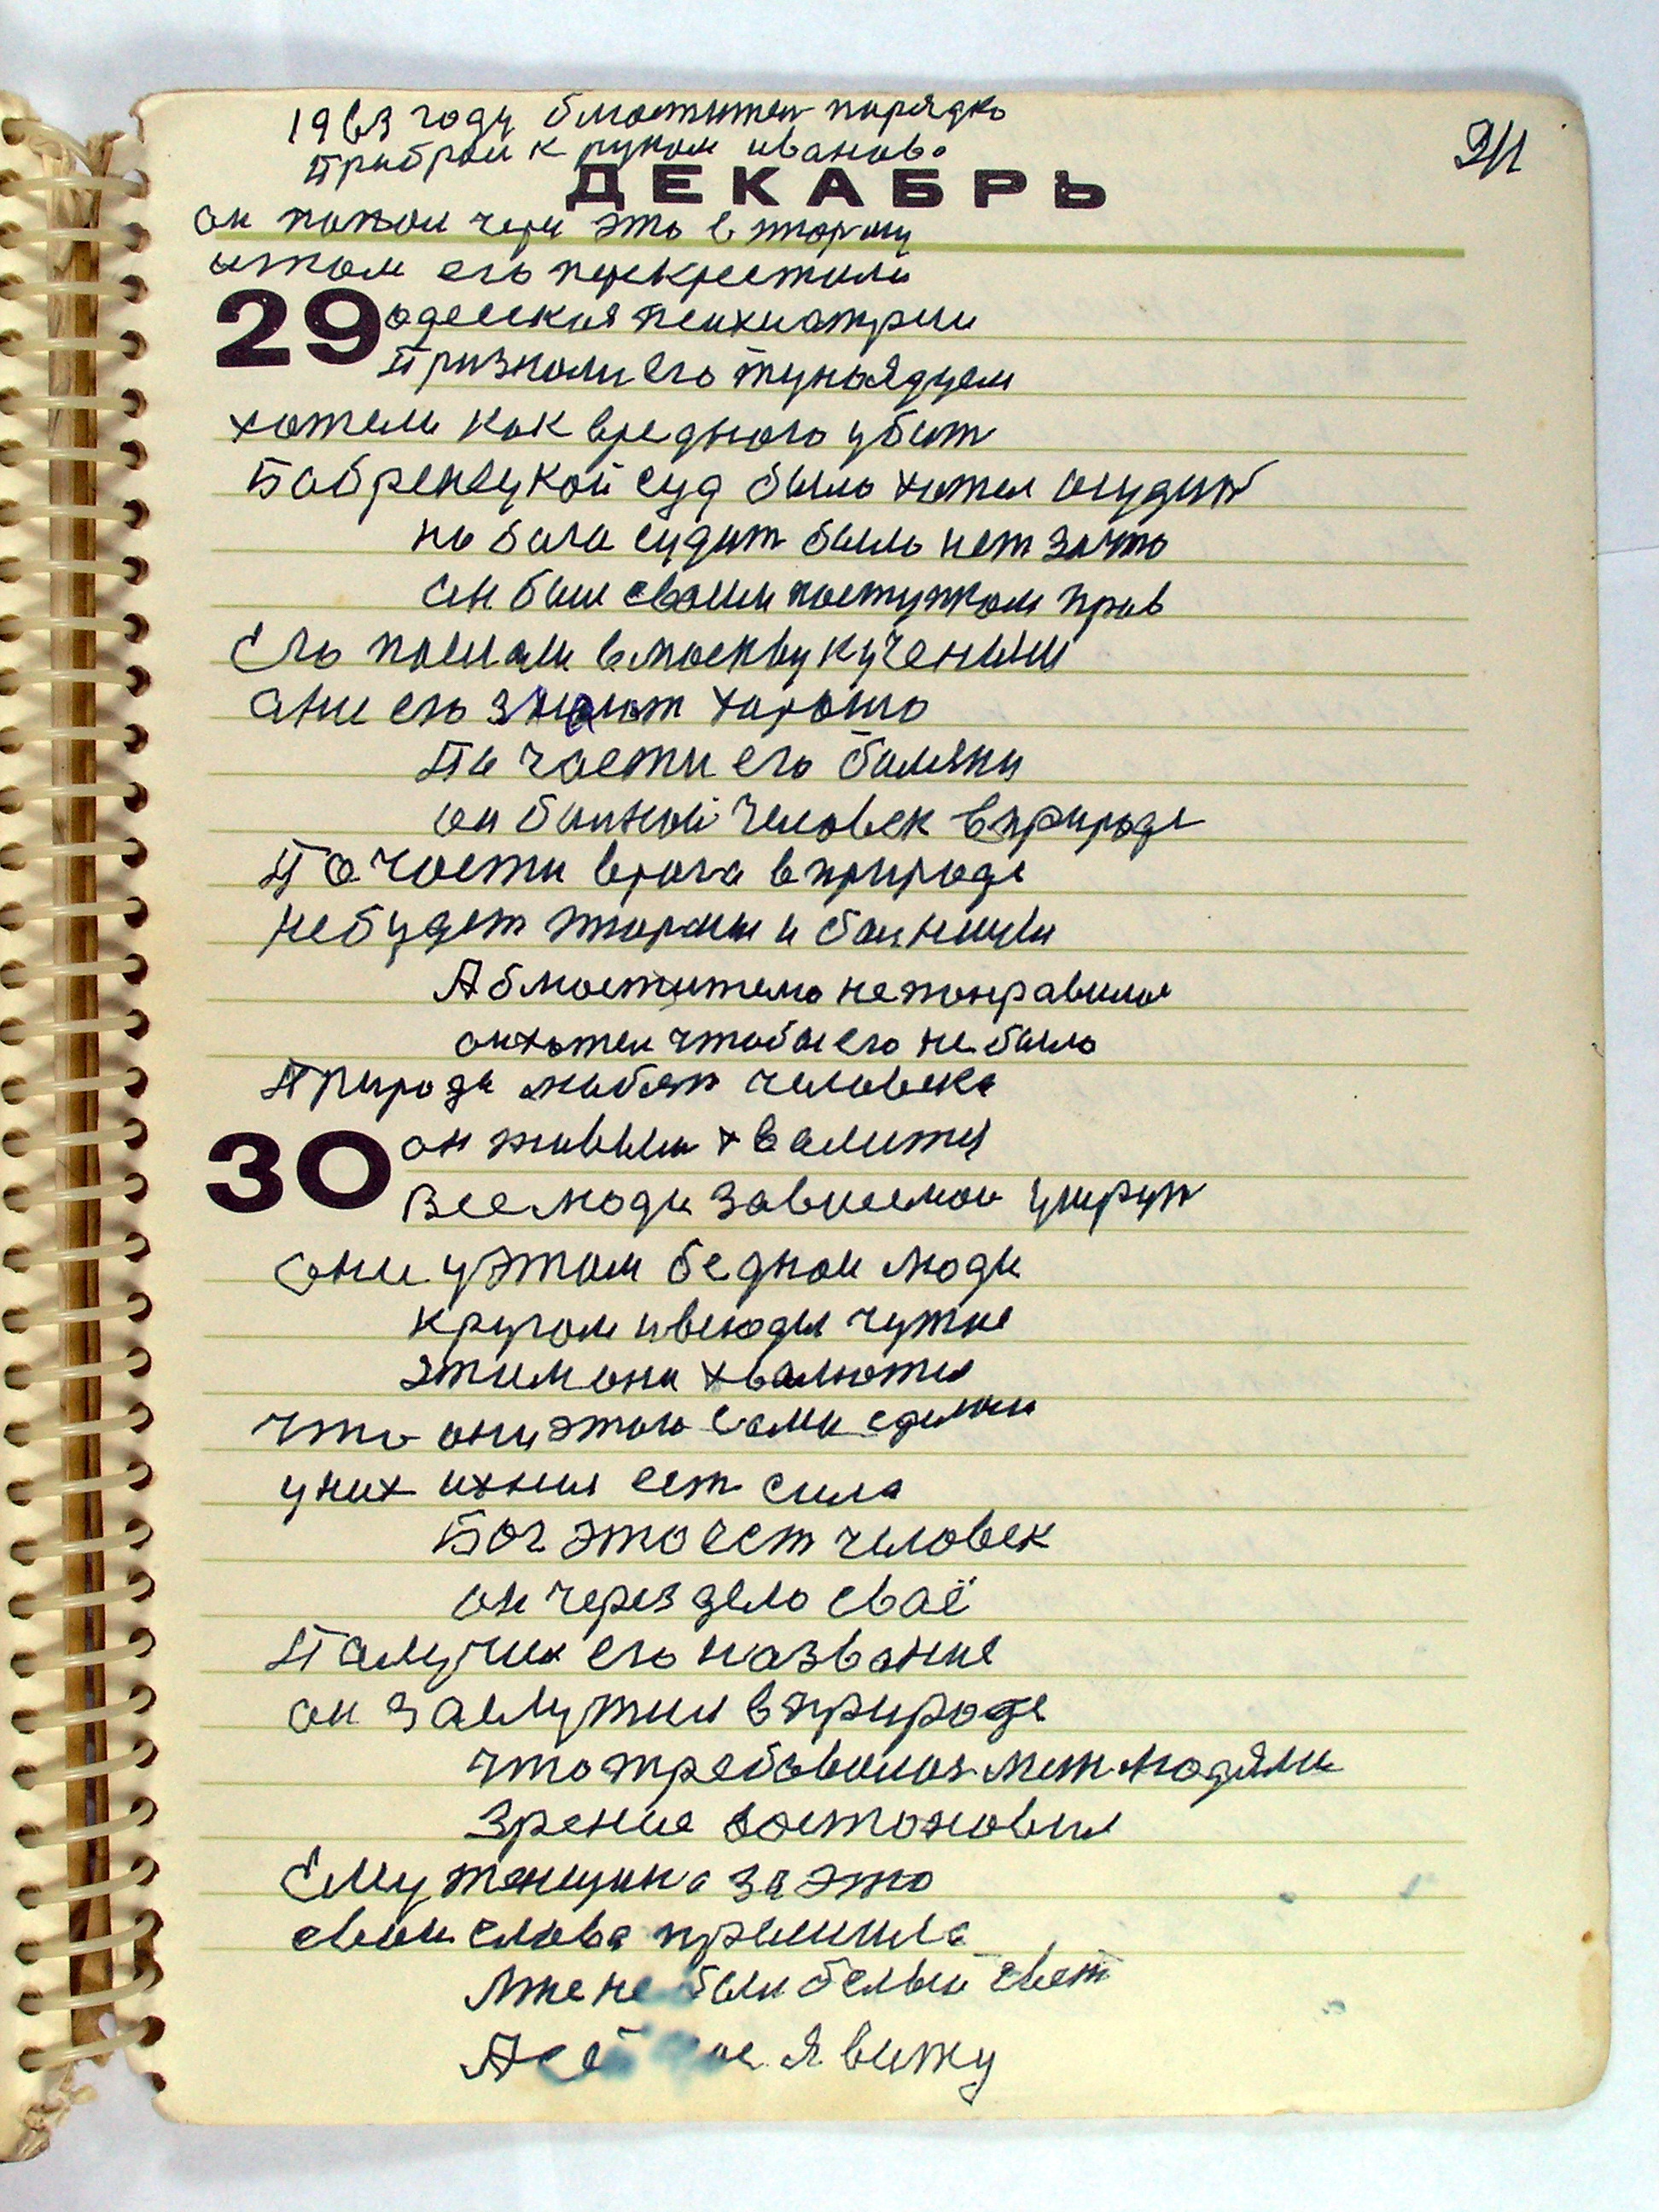 1963 году блюститель порядка
Прибрал к рукам иванова
ДЕКАБРЬ
он попал через это в тюрму
им его перекрестили
29 одесская психиатрии
Признали его тунеядцем
хотели как вредного убит
Бобренецкой суд было хотел осудит
но бога судит было нет зачто
он был своим поступком прав
Его послали вмоскву кученым
они его знают хорошо
По части его болезни
он больной человек вприроде
По части врага вприроде
небудет тюрмы и больницы
Аблюстителю непонравилос
онхотел чтобы его не было
Природа любят человека
30 он живым хвалится
Вселюди зависемои умирут
они уэтом бедное люди
кругом ивсюды чужие
этимони хвалются
что ониэтого сами сделали
уних ихния ест сила
Бог это ест человек
он через дело сваё
Палучил его название
он заслужил вприроде
чтотребовалос меж людями
Зрение востоновил
Ему женщина заэто
свои слова прислала
Мне не был белый свет
А сейчас я вижу